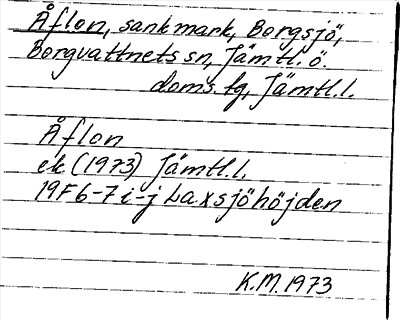 Åflon, sankmark, Borgsjö,
Borgvattnets sn, Jämtl. ö.
doms. tg, Jämtl. l.
Åflon
ek (1973) Jämtl. l.
19F6-7i-j Laxsjöhöjden
K.M. 1973